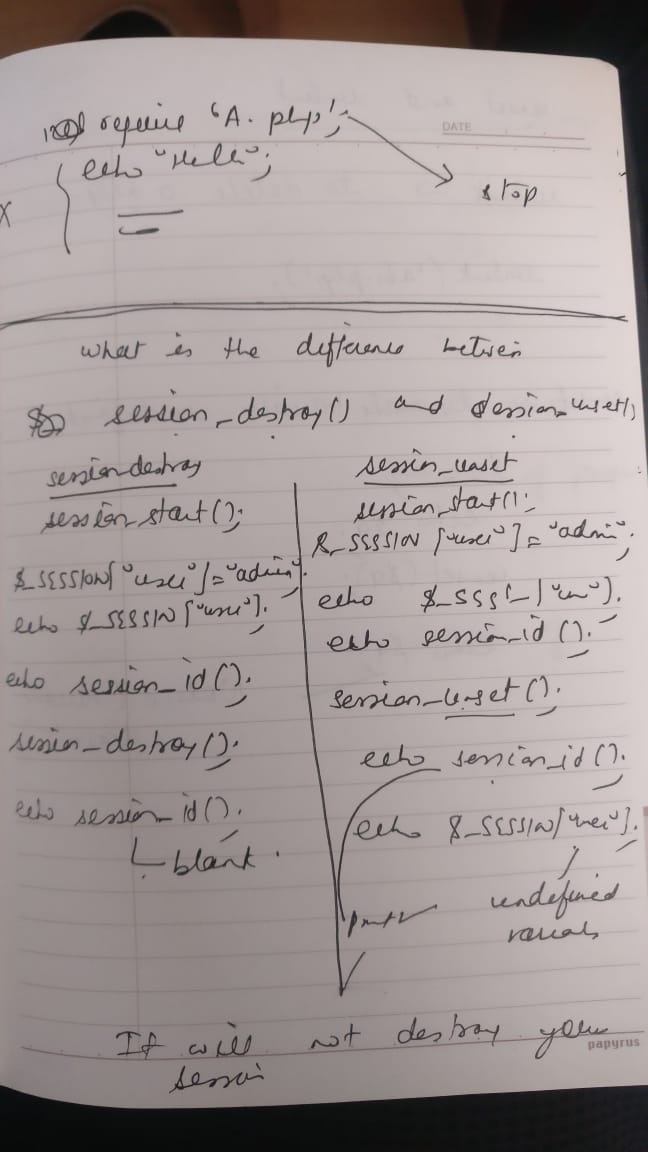 require 'A.php';
DATE
echo "Hello";
stop
X
what is the difference between
session_destroy() and session_unset()
session destroy
session_start();
$_SESSION["user"]="admin";
echo $_SESSION["user"];
echo session_id();
session_destroy();
echo session_id();
blank.
session_unset
session_start();
$_SESSION["user"]="admin";
echo
echo session_id();
session_unset();
echo session_id();
echo $_SESSION["user"];
undefined
It will not destroy your
papyrus